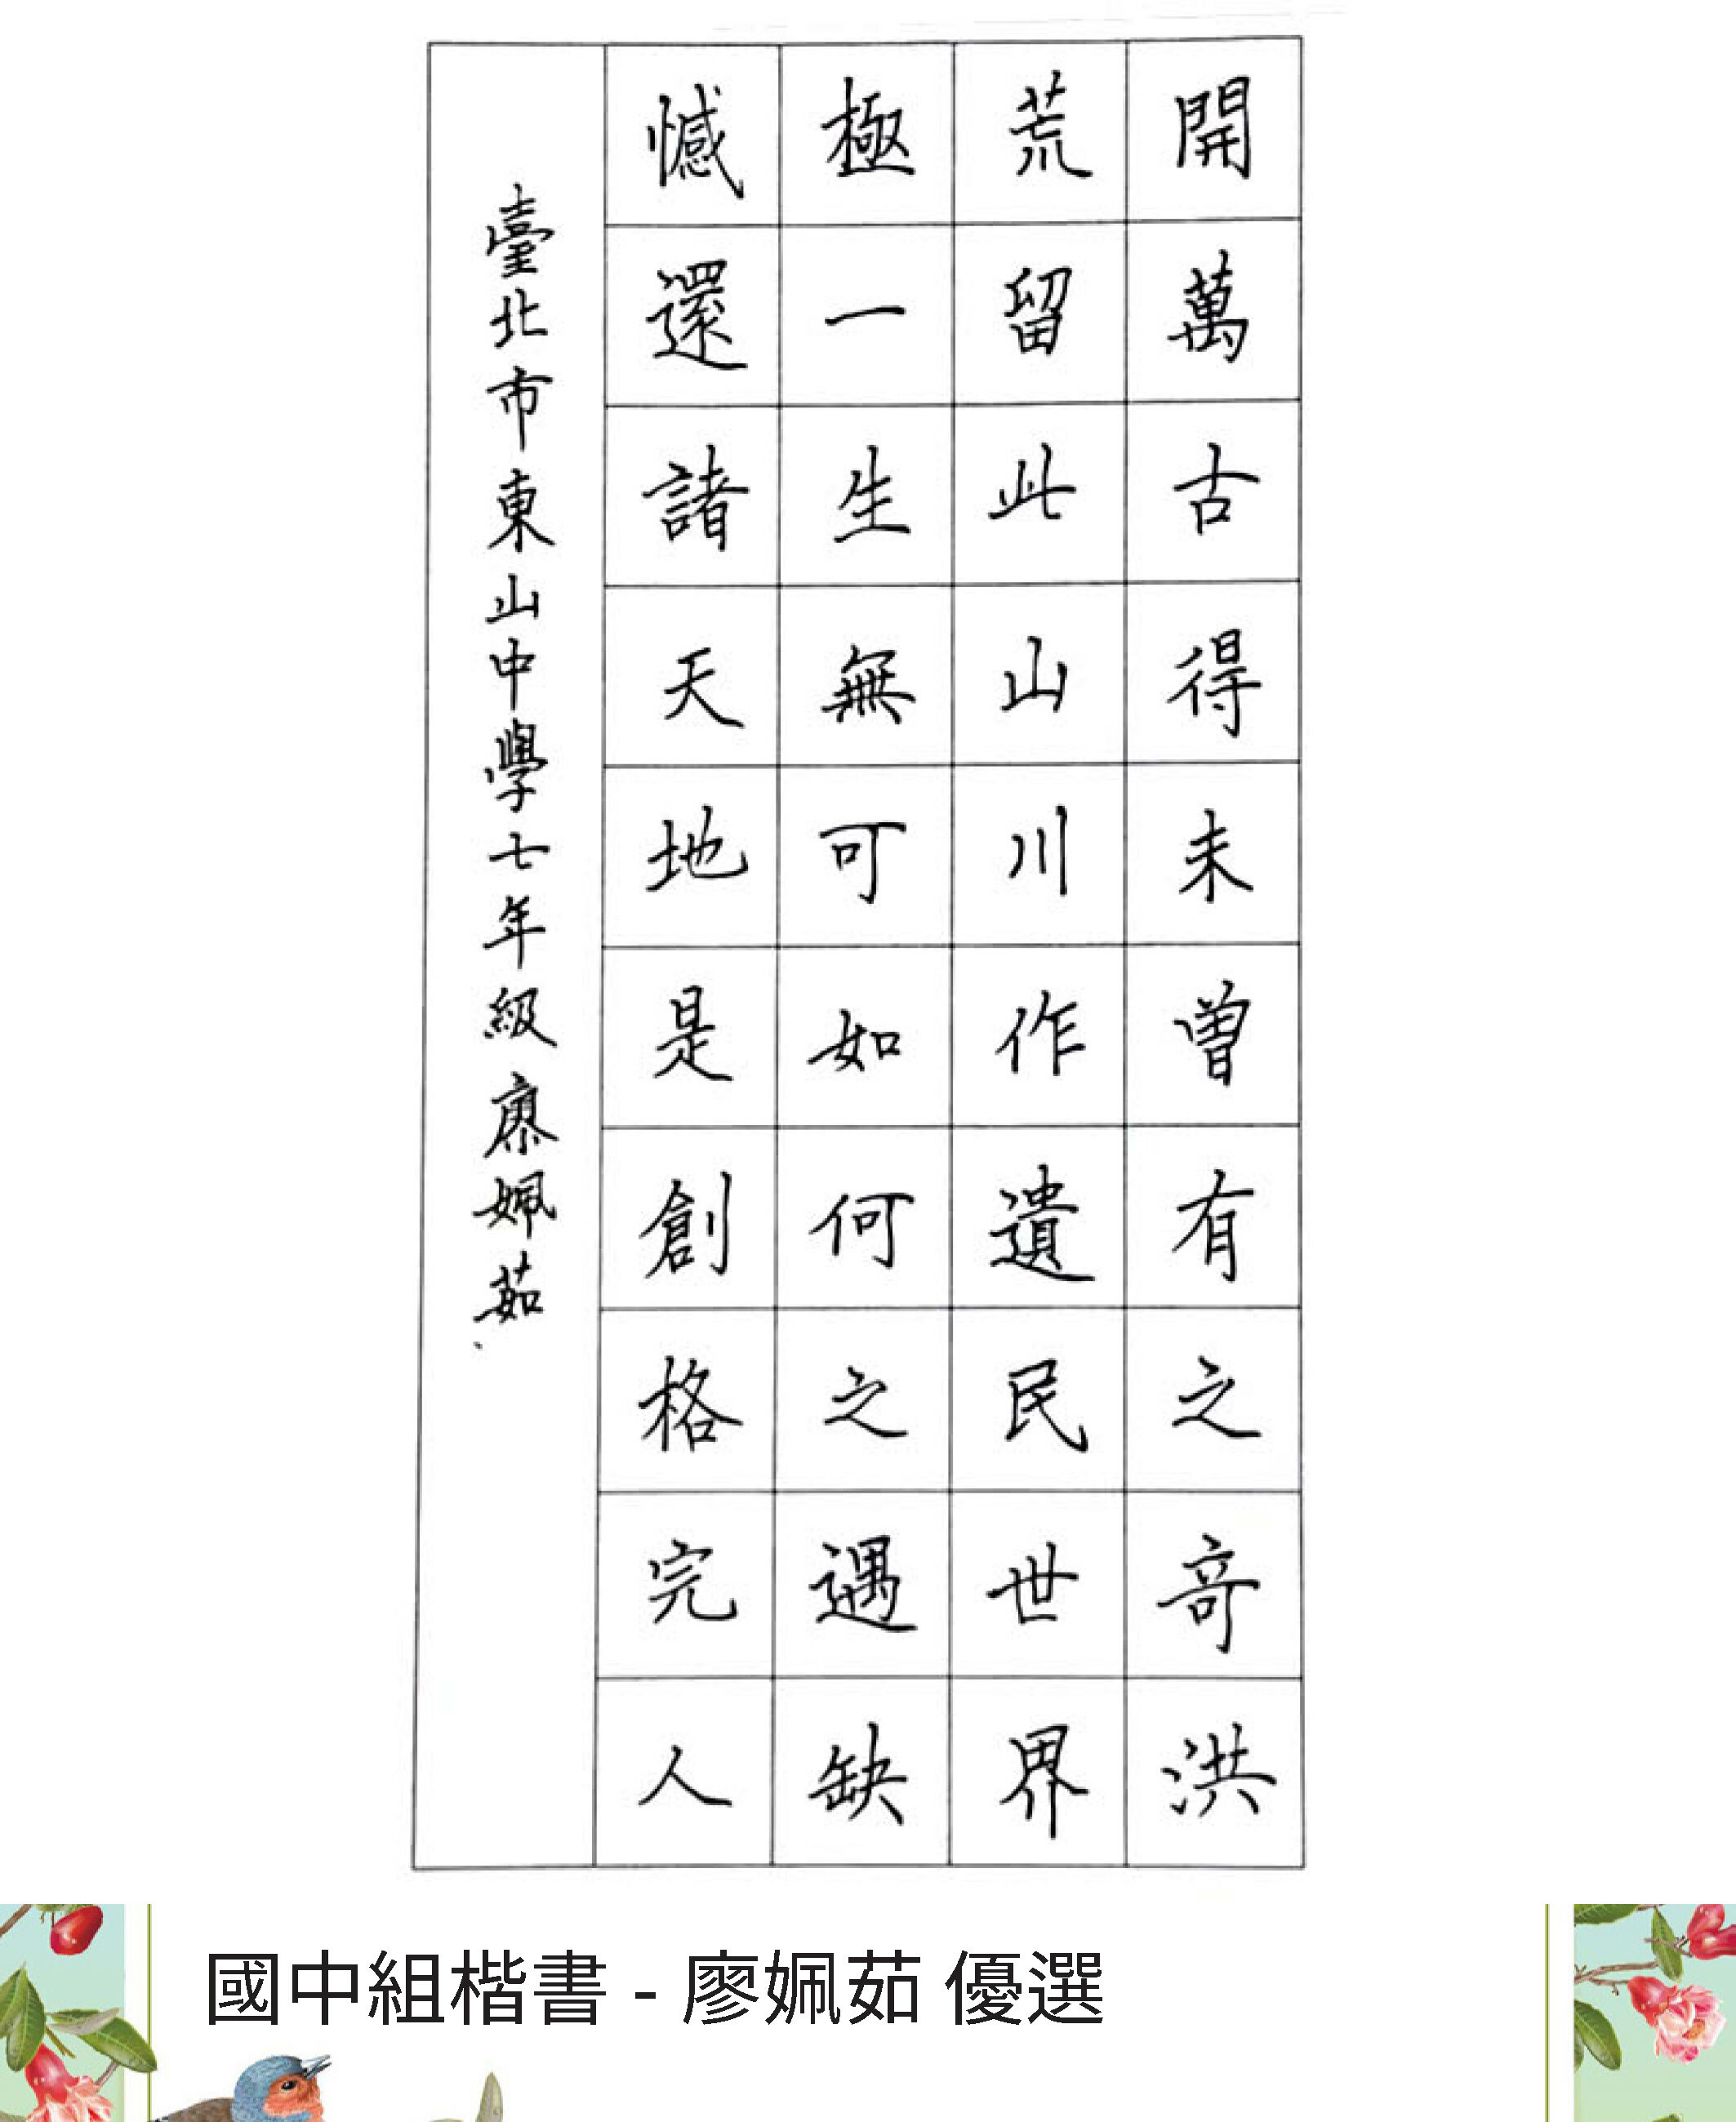 開萬古得未曾有之奇洪
荒留此山川作遺民世界
極一生無可如何之遇缺
憾還諸天地是創格完人
臺北市東山中學七年級廖姵茹
國中組楷書 - 廖姵茹 優選